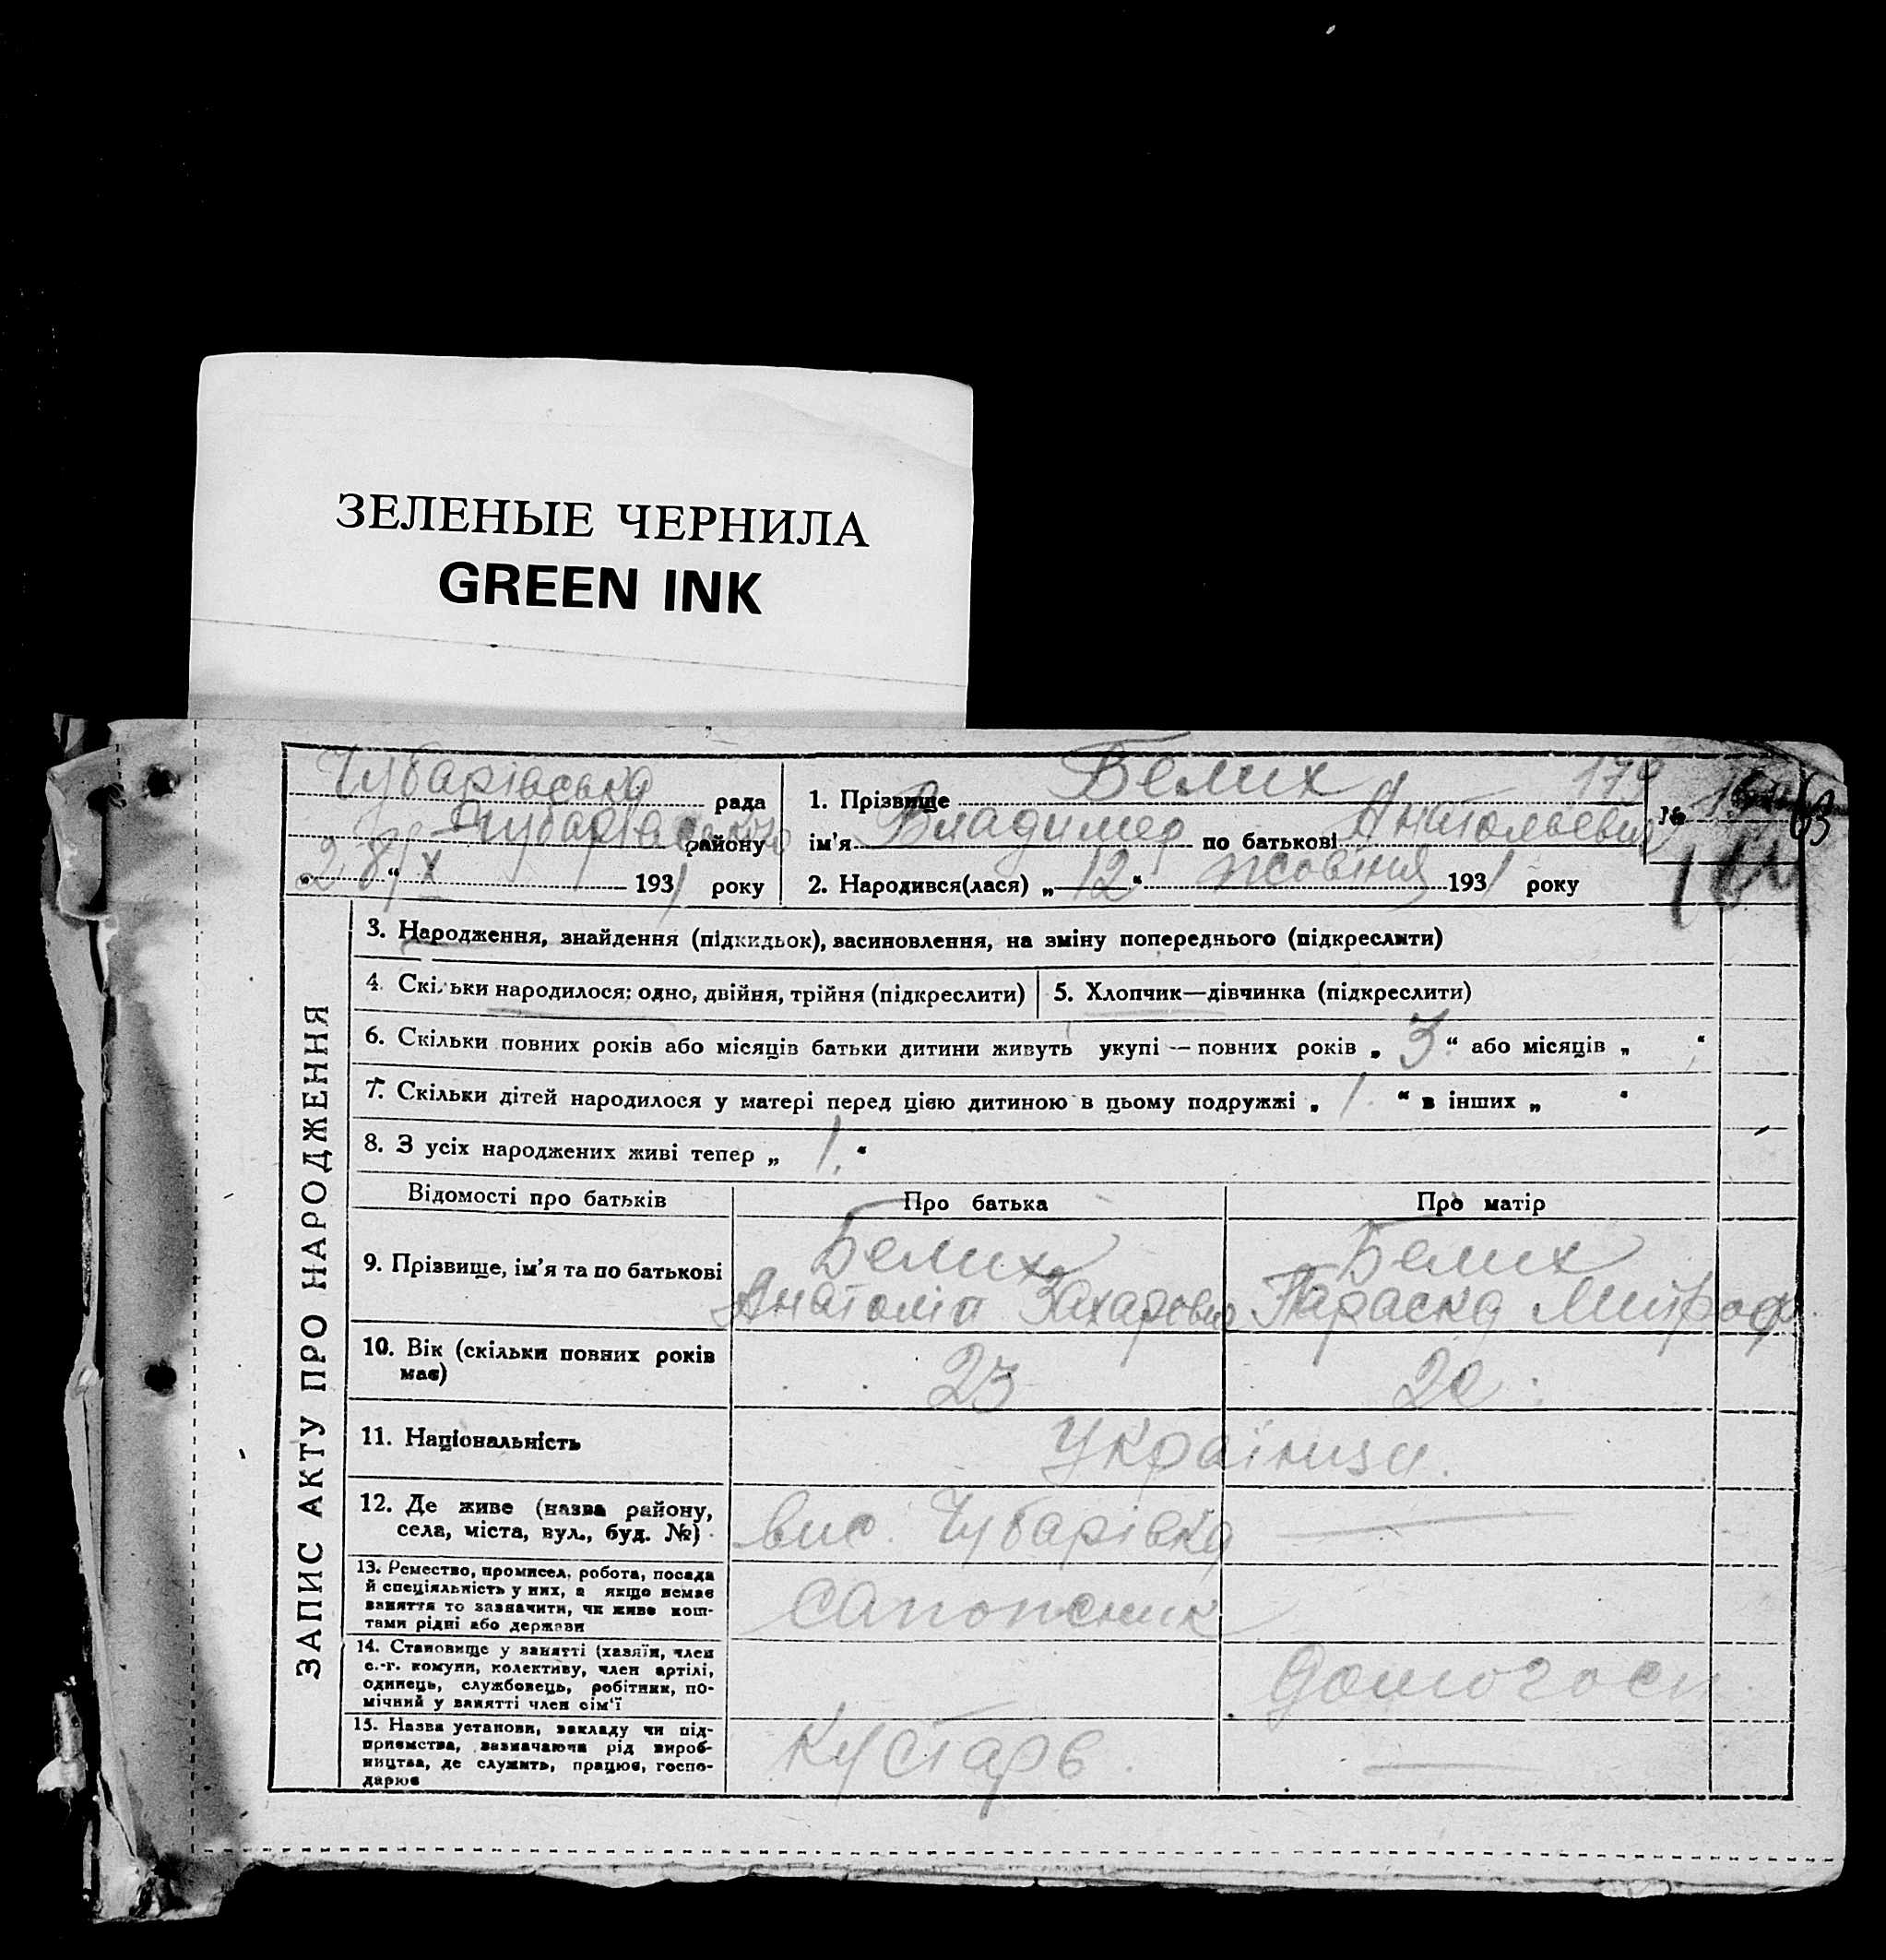 ЗЕЛЕНЫЕ ЧЕРНИЛА
GREEN INK
Чубарівська рада
Чубарівського району
„28“ X 1931 року
1. Прізвище Белих
ім'я Владимер по батькові Анатольевич
2. Народився(лася) „12“ жовтня 1931 року
179
№
ЗАПИС АКТУ ПРО НАРОДЖЕННЯ
3. Народження, знайдення (підкидьок), засиновлення, на зміну попереднього (підкреслити)
4. Скільки народилося: одно, двійня, трійня (підкреслити) 5. Хлопчик—дівчинка (підкреслити)
6. Скільки повних років або місяців батьки дитини живуть укупі — повних років „3“ або місяців „ “
7. Скільки дітей народилося у матері перед цією дитиною в цьому подружжі „1.“ в інших „ “
8. З усіх народжених живі тепер „1.“
Відомості про батьків Про батька Про матір
9. Прізвище, ім'я та по батькові
Белих
Анатолій Захарович
Белих
Параска Митроф
10. Вік (скільки повних років
має)
23 20
11. Національність Українци.
12. Де живе (назва району,
села, міста, вул., буд. №)
вис. Чубарівка
13. Ремество, промисел, робота, посада
й спеціяльність у них, а якщо немає
заняття то зазначити, чи живе кош-
тами рідні або держави
сапожник
14. Становище у занятті (хазяїн, член
с.-г. комуни, колективу, член артілі,
одинець, службовець, робітник, по-
мічний у занятті член сім'ї
домогосп.
15. Назва установи, закладу чи під-
приємства, зазначаючи рід вироб-
ництва, де служить, працює, госпо-
дарює
Кустарь.